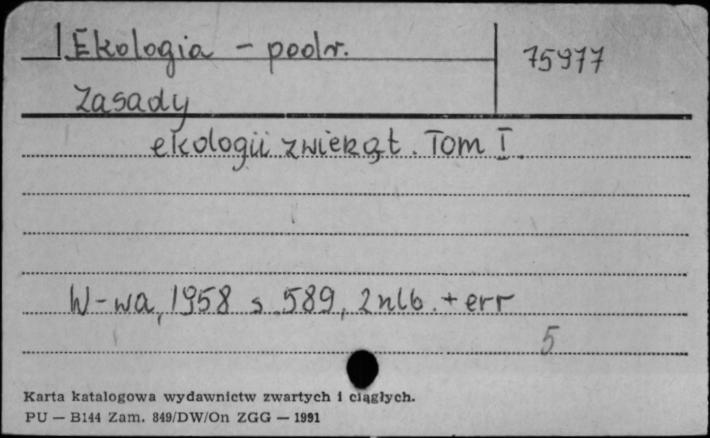 Ekologia - podr.
75977
Zasady
ekologii zwierząt. Tom I.
W-wa, 1958 s. 589, 2nlb. + err
5
Karta katalogowa wydawnictw zwartych i ciągłych.
PU — B144 Zam. 849/DW/On ZGG — 1991